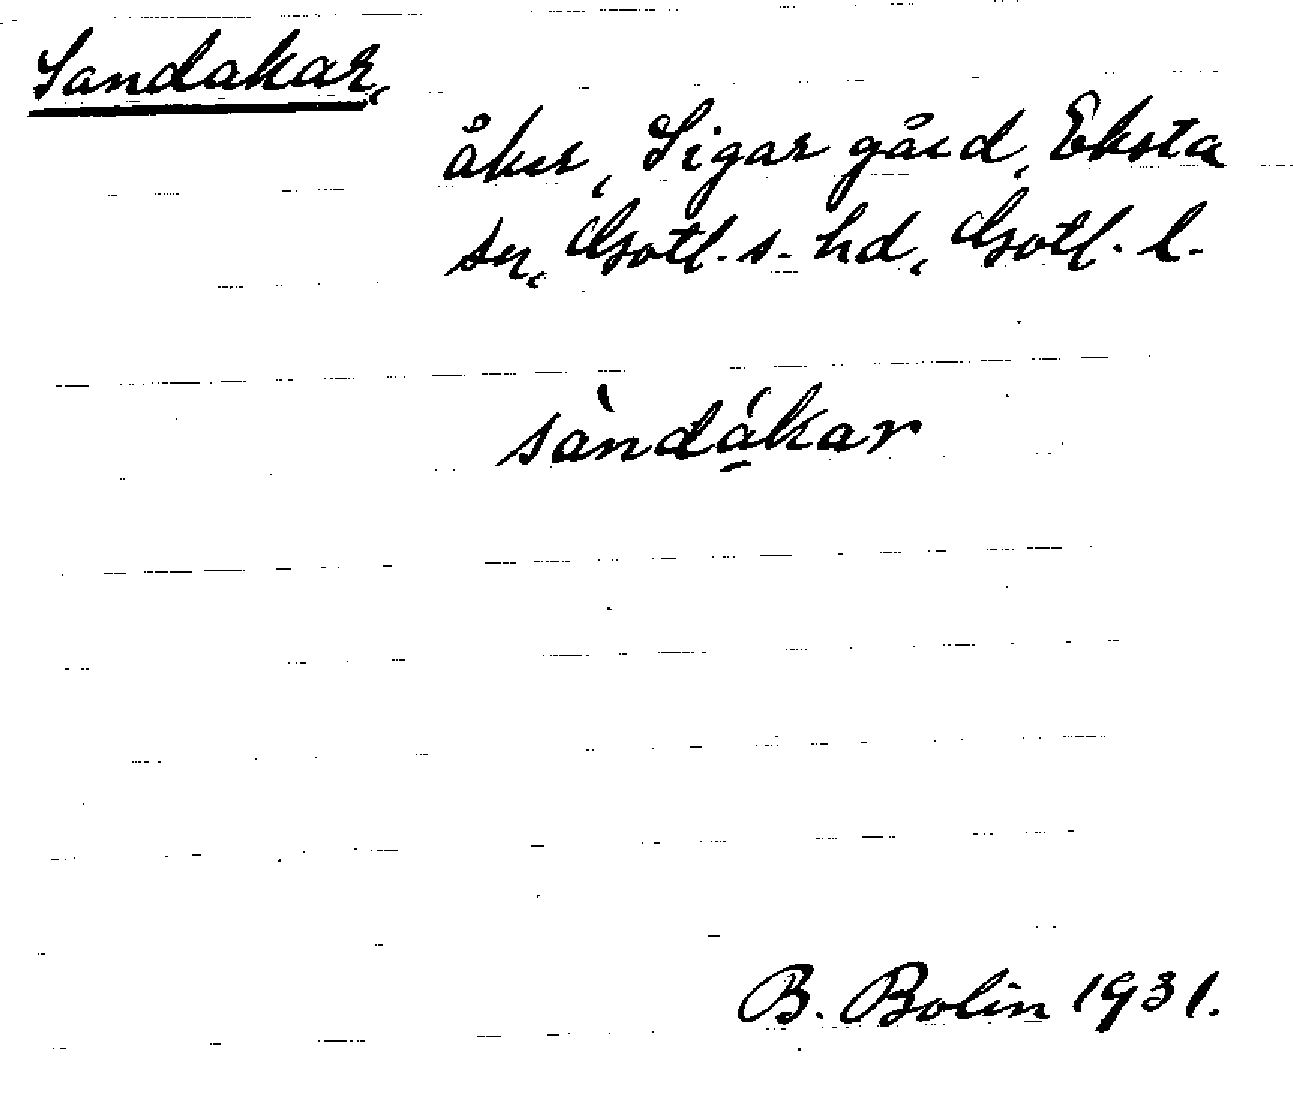 Sandakar,
åker, Sigar gård, Eksta
sn, Gotl. s. hd, Gotl. l.
sàndá̱kar
B. Bolin 1931.